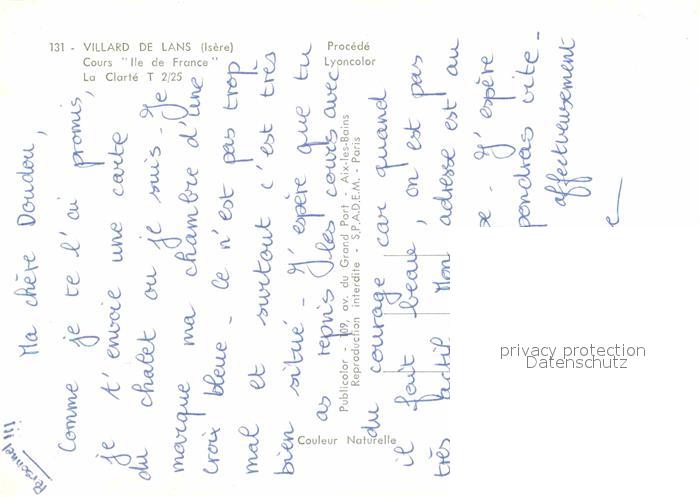 131 - VILLARD DE LANS (Isère)
Cours "Ile de France"
La Clarté T 2/25
Procédé
Lyoncolor
Publicolor - 109, av. du Grand Port - Aix-les-Bains
Reproduction interdite - S.P.A.D.E.M. - Paris
Couleur Naturelle
Personnel !!!
Ma chère Doudou,
Comme je te l'ai promis,
je t'envoie une carte
du chalet ou je suis - Je
marque ma chambre d'une
croix bleue - ce n'est pas trop
mal et surtout c'est très
bien situé - J'espère que tu
as repris les cours avec
du courage car quand
il fait beau, on est pas
très actif. Mon adresse est au
J'espère
pondras vite -
affectueusement
privacy protection
Datenschutz